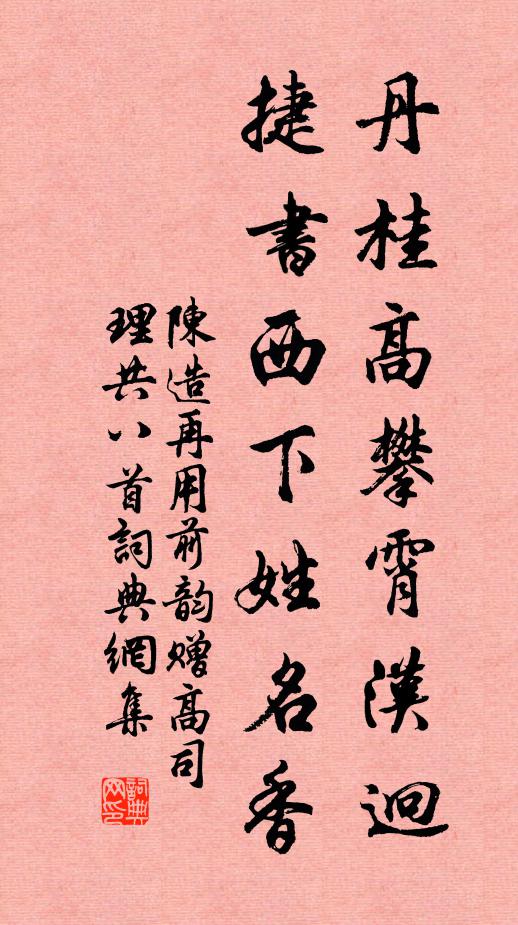 丹桂高攀霄漢迥
捷書西下姓名香
陳造再用前韵贈高司
理共八首詞典網集
詞典网印